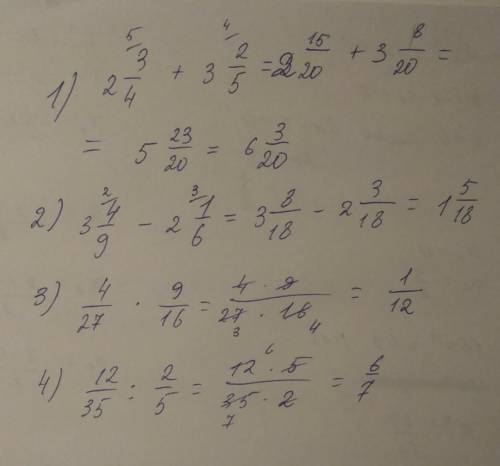 1) 2 3/4 ⁵ + 3 2/5 ⁴ = 2 15/20 + 3 8/20 =
= 5 23/20 = 6 3/20
2) 3 4/9 ² − 2 1/6 ³ = 3 8/18 − 2 3/18 = 1 5/18
3) 4/27 · 9/16 = 4 · 9/27 · 16 = 1/12
3 4
4) 12/35 : 2/5 = 12 ⁶ · 5/35 · 2 = 6/7
7